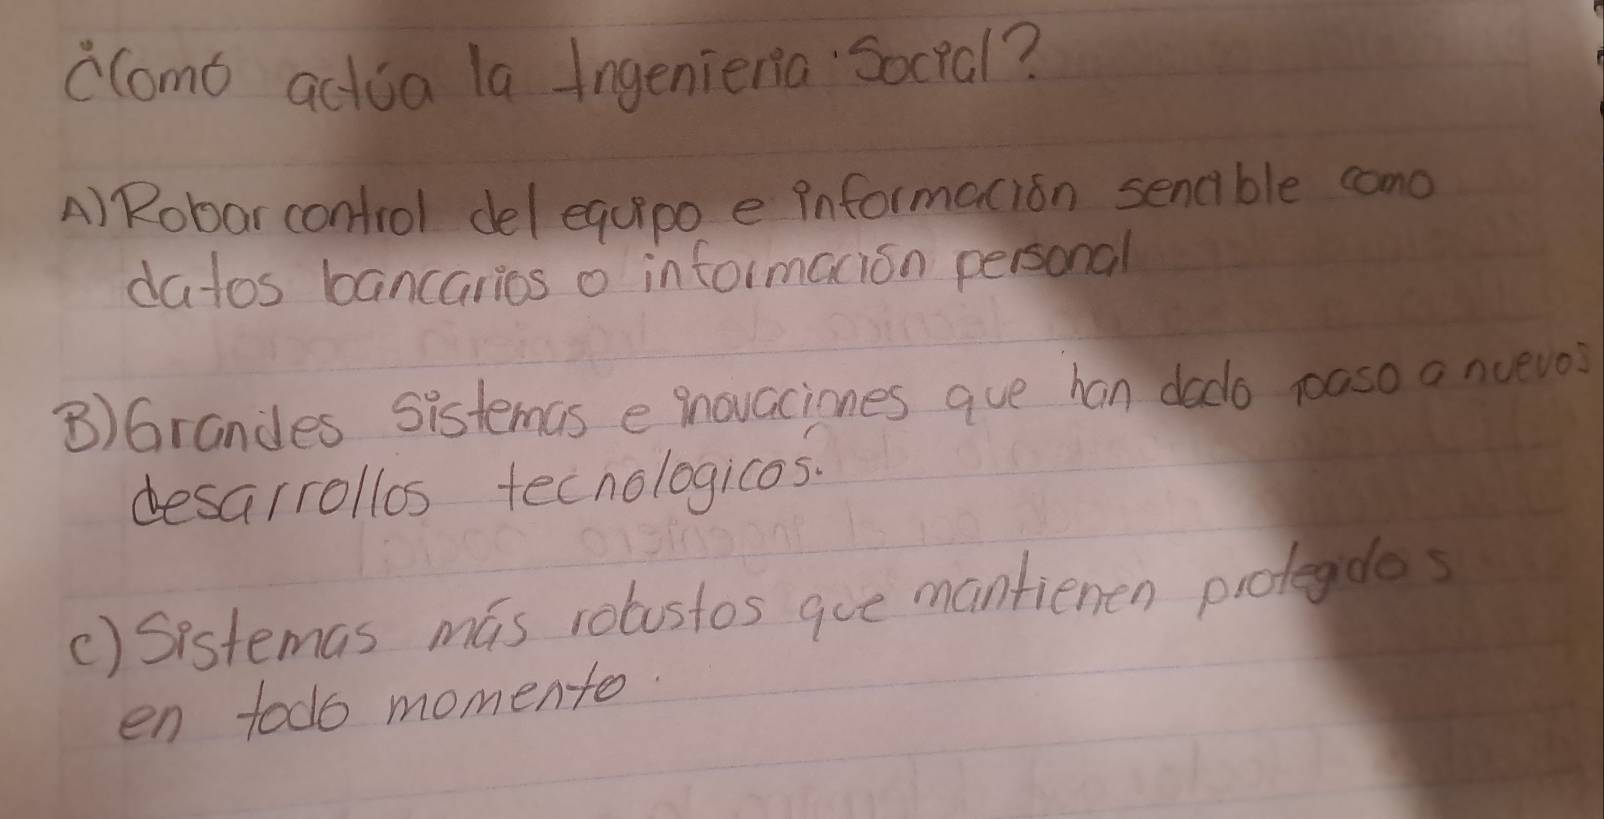 ¿Como actúa la Ingenieria Social?
A) Robar control del equipo e información sencible como
datos bancarios o información personal
B) Grandes sistemas e inovaciones que han dado paso a nuevos
desarrollos tecnologicos.
c) Sistemas más robustos que mantienen protegidos
en todo momento.